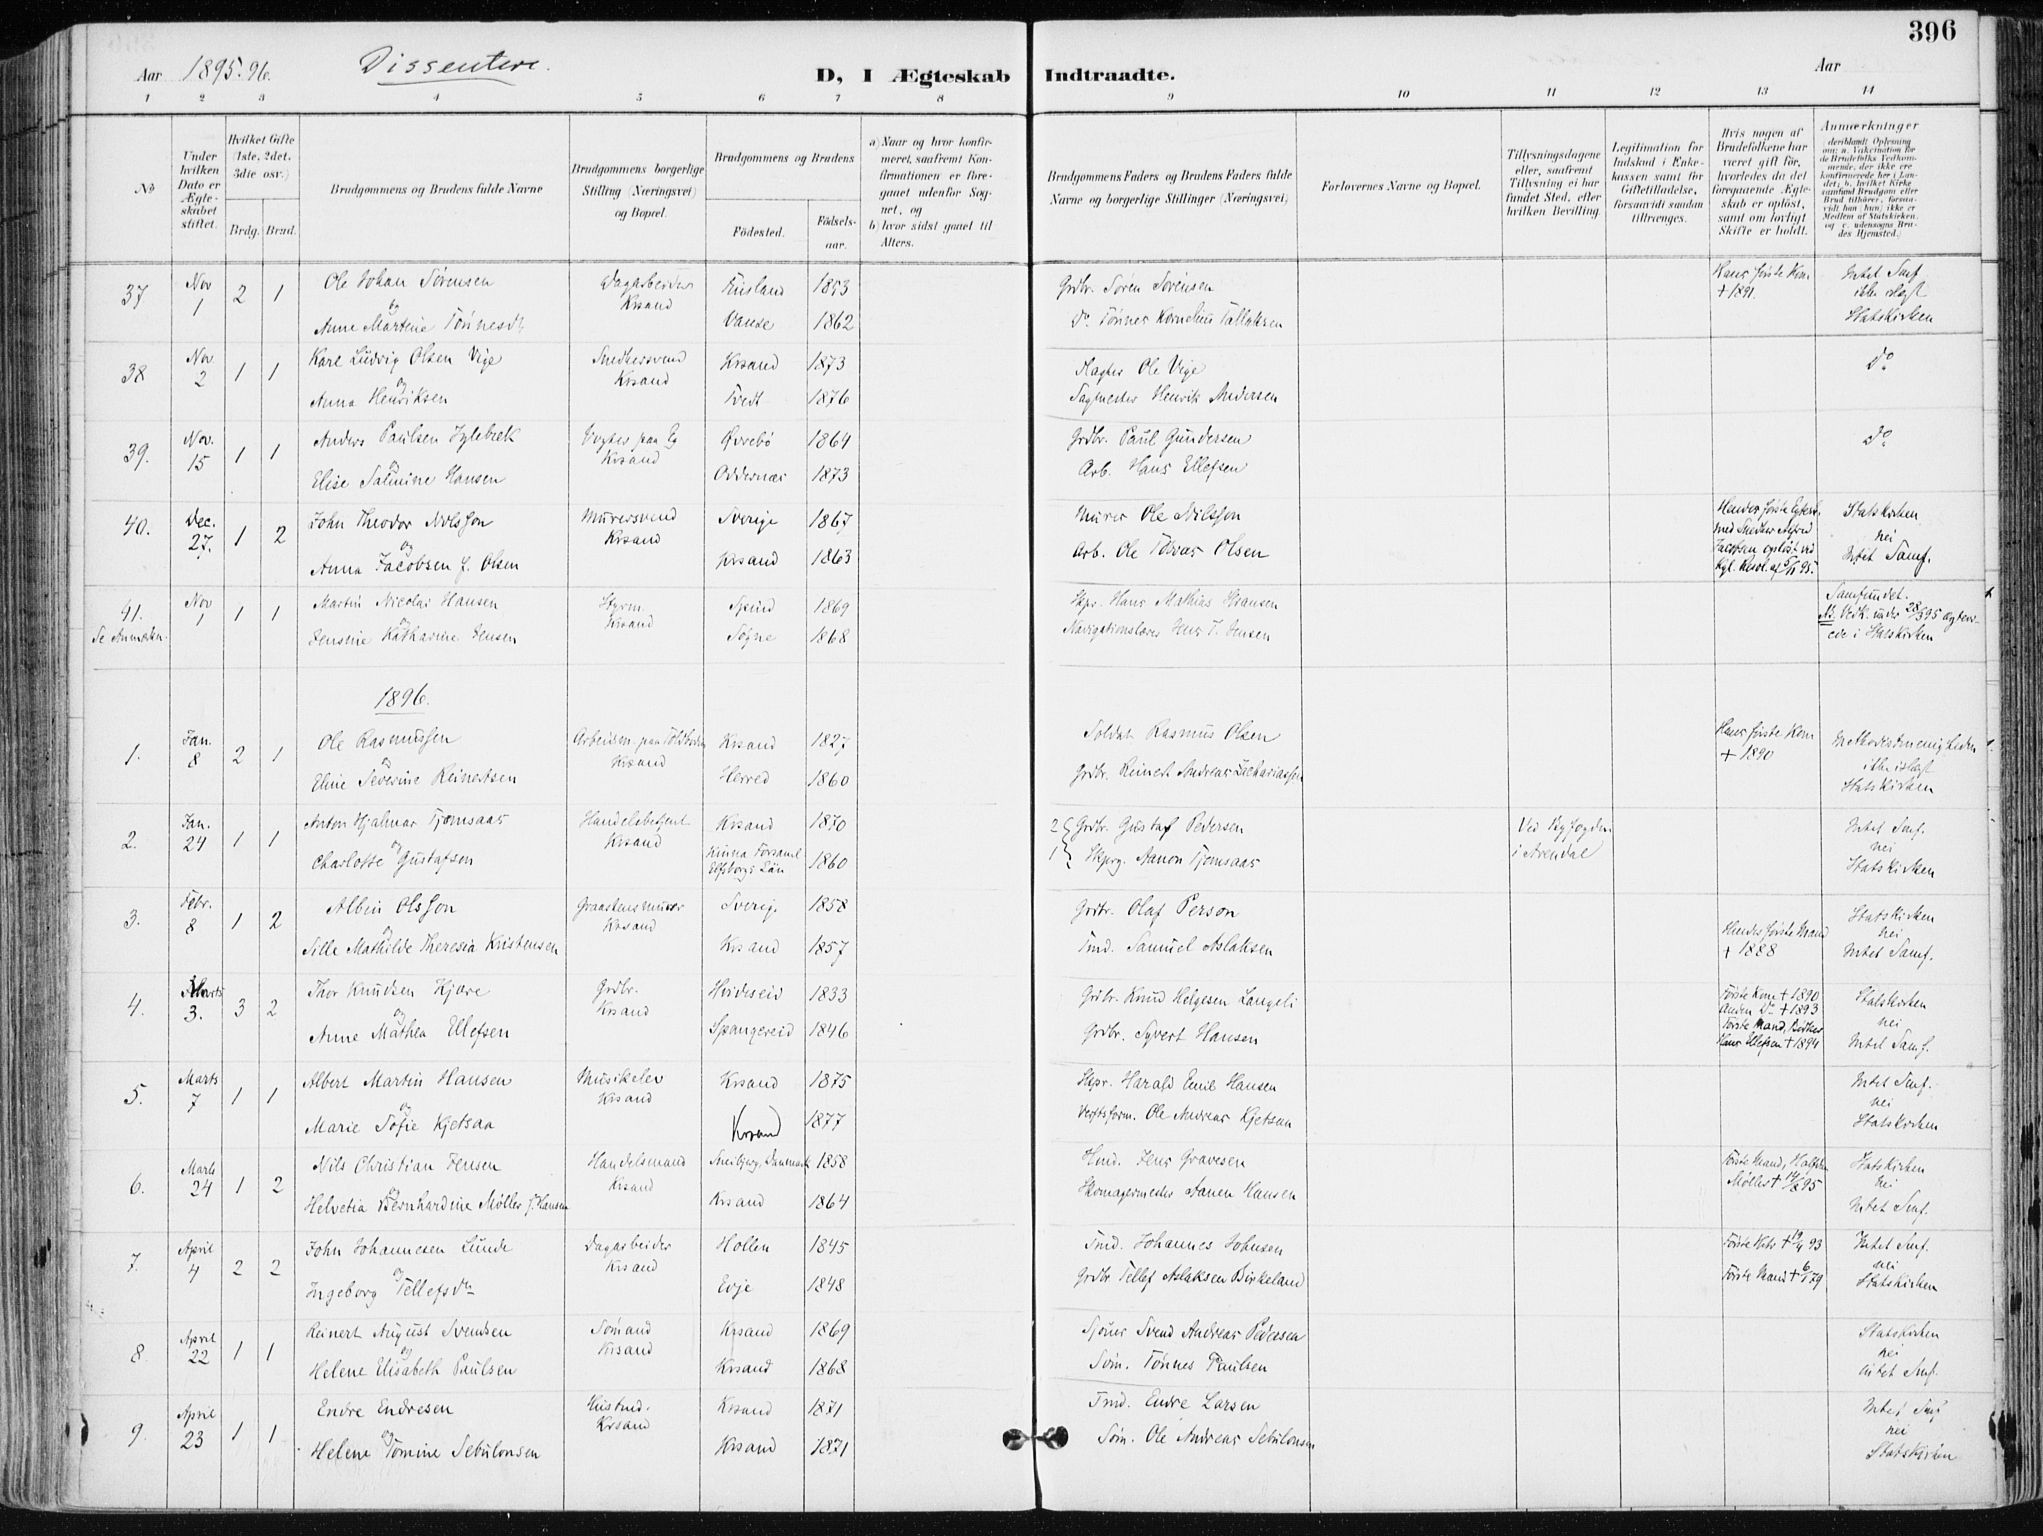 396
Aar 1895.96. Dissentere. D, I Ægteskab Indtraadte. Aar
1 2 3 4 5 6 7 8 9 10 11 12 13 14
No
Under hvilken Dato er Ægteskabet stiftet.
Hvilket Gifte (1ste, 2det, 3die osv.)
Brdg. Brud.
Brudgommens og Brudens fulde Navne
Brudgommens borgerlige Stilling (Næringsvei) og Bopæl.
Brudgommens og Brudens
Födested. Födselsaar.
a) Naar og hvor konfirmeret, saafremt Konfirmationen er foregaaet udenfor Sognet, og
b) hvor sidst gaaet til Alters.
Brudgommens Faders og Brudens Faders fulde Navne og borgerlige Stillinger (Næringsvei)
Forlovernes Navne og Bopæl.
Tillysningsdagene eller, saafremt Tillysning ei har fundet Sted, efter hvilken Bevilling.
Legitimation for Indskud i Enkekassen samt for Giftetilladelse, forsaavidt saadan tiltrænges.
Hvis nogen af Brudefolkene har været gift för, hvorledes da det foregaaende Ægteskab er oplöst, samt om lovligt Skifte er holdt.
Anmærkninger (deriblandt Oplysning om: a. Vakcination for de Brudefolks Vedkommende, der ikke ere konfirmerede her i Landet; b. hvilket Kirkesamfund Brudgom eller Brud tilhører, forsaavidt han (hun) ikke er Medlem af Statskirken, og c. udensogns Brudes Hjemsted.)
37 Nov 1 2 1 Ole Johan Sørensen Dagarbeider Krsand Finsland 1853 Grdbr. Søren Sørensen Hans første Kone + 1891. Intet Smf.
og
Anne Martine Tønnesdt. Vanse 1862 Do. Tønnes Kornelius Tallaksen Statskirken
38 Nov 2 1 1 Karl Ludvig Olsen Vige Snedkersvend Krsand Krsand 1873 Slagter Ole Vige Do
og
Anna Henriksen Tvedt 1876 Sagmester Henrik Andersen
39. Nov. 15 1 1 Anders Paulsen Iglebæk Vogter paa Eg Krsand Øvrebø 1864 Grdbr. Paul Gundersen Do
og
Elise Salmine Hansen Oddernæs 1873 Arb. Hans Ellefsen
40. Dec. 27. 1 2 John Theodor Nilsson Murersvend Krsand Sverige 1867 Murer Ole Nilsson Statskirken
og nei
Anna Jacobsen f. Olsen Krsand 1863 Arb. Ole Olsen Intet Samf.
41. Nov 1 1 1 Martin Nicolai Hansen Styrm. Krsand Spind 1869 Skpr. Hans Mathias Hansen Samfundet.
og
Jensine Katharine Jensen Søgne 1868 Navigationslærer Jens T. Jensen i Statskirken
1896.
1. Jan. 8 2 1 Ole Rasmussen Krsand Krsand 1827 Soldat Rasmus Olsen Hans første Kone + 1890 Methodistmenigheden
og
Eline Severine Reinertsen Herred 1860 Grdbr. Reinert Andreas Zachariassen Statskirken
2. Jan. 24 1 1 Anton Hjalmar Tjomsaas Handelsbetjent Krsand Krsand 1870 2 Grdbr. Gustaf Pedersen Ved Byfogden i Arendal Intet Smf.
og nei
Charlotte Gustafsen Kinna Forsaml. Elfsborgs Län 1860 1 Skprg. Aanon Tjomsaas Statskirken
3. Febr. 8 1 2 Albin Olsson Graastensmurer Krsand Sverig. 1858 Grdbr. Olaf Person Hendes første Mand + 1888 Statskirken
og nei
Sille Mathilde Theresia Kristensen Krsand 1857 Tmd. Samuel Aslaksen Intet Samf.
4. Marts 3. 3 2 Thor Knudsen Kjære Grdbr. Krsand Hvideseid 1833 Grdbr. Knud Helgesen Langeli Første Kone + 1890 Anden Do + 1893 Statskirken
og nei
Anne Mathea Ellefsen Spangereid 1846 Grdbr. Syvert Hansen Første Mand, Hans Ellefsen + 1894 Intet Samf.
5. Marts 7 1 1 Albert Martin Hansen Musikelev Krsand Krsand 1875 Skpr. Harald Emil Hansen Intet Smf.
og nei
Marie Sofie Kjetsaa Krsand 1877 Verftsform. Ole Andreas Kjetsaa Statskirken
6. Marts 24 1 2 Nils Christian Jensen Handelsmand Krsand Sneibjerg, Danmark 1858 Hmd. Jens Gravesen Første Mand, Statskirken
og nei
Helvetia Bernhardine Møller f. Hansen Krsand 1864 Skomagermester Aanen Hansen Intet Smf.
7. April 4 2 2 John Johannesen Lunde Dagarbeider Krsand Hollen 1845 Tmd. Johannes Johnsen Intet Smf.
og nei
Ingeborg Tellefsdtr Evje 1848 Grdbr Tellef Aslaksen Birkeland Første Mand + 6/1 79 Statskirken
8. April 22 1 1 Reinert August Svendsen Sømand Krsand Krsand 1869 Svend Andreas Pedersen Statskirken
og nei
Helene Elisabeth Paulsen Krsand 1868 Søm. Tønnes Paulsen intet Smf.
9. April 23 1 1 Endre Endresen Krsand Krsand 1871 Tmd. Endre Larsen Intet Smf
og nei
Helene Tomine Sebulonsen Krsand 1871 Søm. Ole Andreas Sebulonsen Statskirken